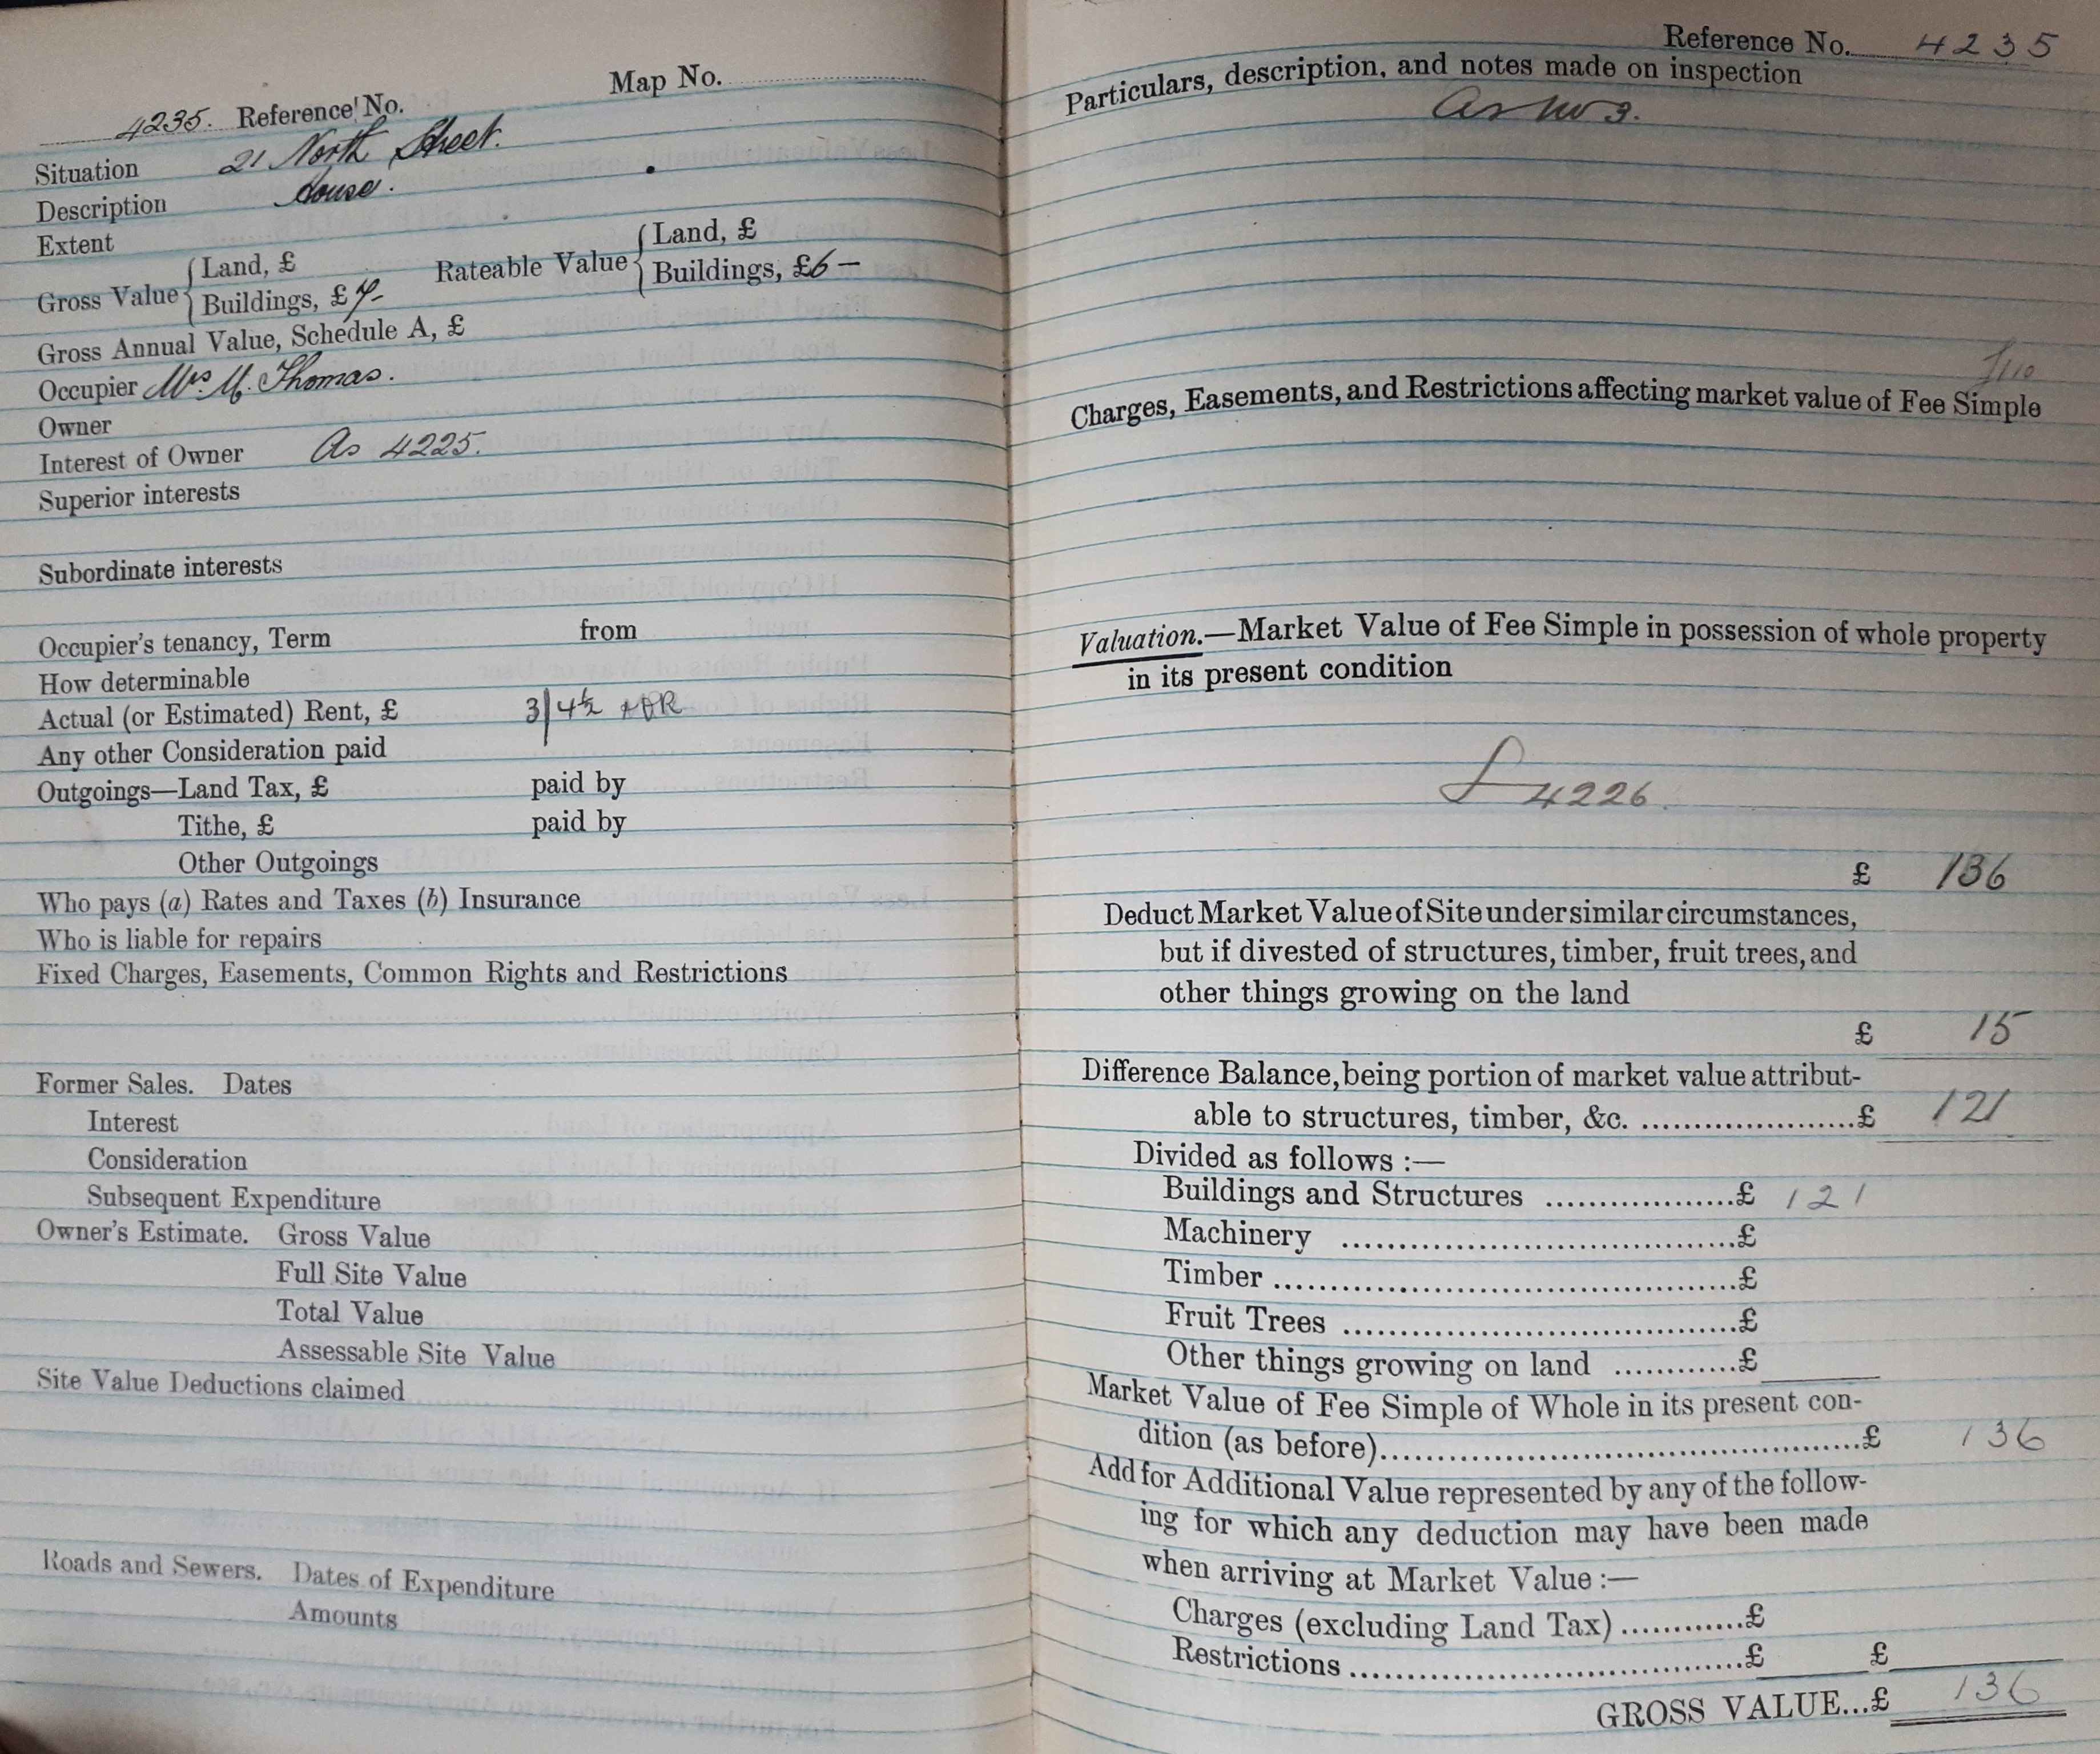 4235. Reference No.
Map No.
Situation 21 North Street.
Description House.
Extent
Gross Value { Land, £
Buildings, £7-
Rateable Value { Land, £
Buildings, £6 –
Gross Annual Value, Schedule A, £
Occupier Mrs M. Thomas.
Owner
Interest of Owner As 4225.
Superior interests
Subordinate interests
Occupier's tenancy, Term from
How determinable
Actual (or Estimated) Rent, £ 3/4½
Any other Consideration paid
Outgoings—Land Tax, £ paid by
Tithe, £ paid by
Other Outgoings
Who pays (a) Rates and Taxes (b) Insurance
Who is liable for repairs
Fixed Charges, Easements, Common Rights and Restrictions
Former Sales. Dates
Interest
Consideration
Subsequent Expenditure
Owner's Estimate. Gross Value
Full Site Value
Total Value
Assessable Site Value
Site Value Deductions claimed
Roads and Sewers. Dates of Expenditure
Amounts
Reference No. 4235
Particulars, description, and notes made on inspection
As No 3.
Charges, Easements, and Restrictions affecting market value of Fee Simple
Valuation.—Market Value of Fee Simple in possession of whole property
in its present condition
£ 4226.
£ 136
Deduct Market Value of Site under similar circumstances,
but if divested of structures, timber, fruit trees, and
other things growing on the land
£ 15
Difference Balance, being portion of market value attribut-
able to structures, timber, &c. ......................£ 121
Divided as follows :—
Buildings and Structures ..................£ 121
Machinery ......................................£
Timber ............................................£
Fruit Trees ......................................£
Other things growing on land ............£
Market Value of Fee Simple of Whole in its present con-
dition (as before)................................................£ 136
Add for Additional Value represented by any of the follow-
ing for which any deduction may have been made
when arriving at Market Value :—
Charges (excluding Land Tax) ............£
Restrictions ......................................£ £
GROSS VALUE...£ 136